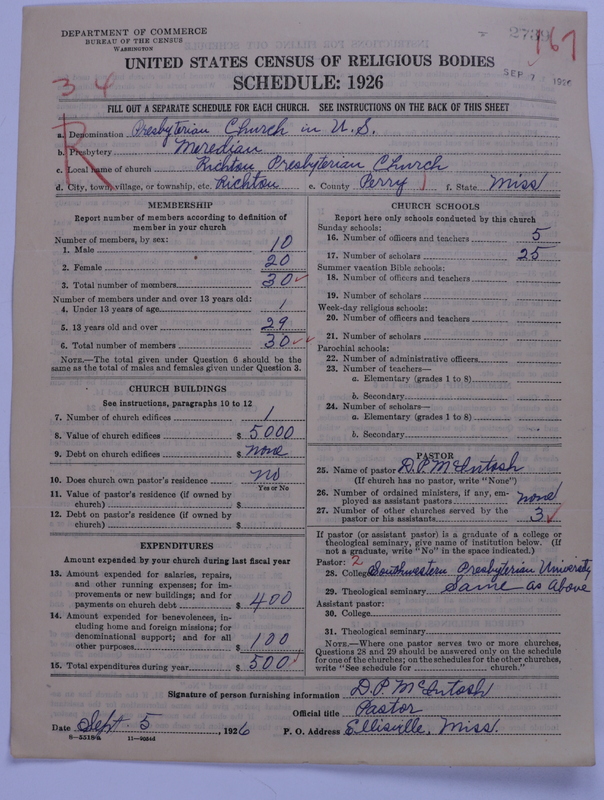 DEPARTMENT OF COMMERCE
BUREAU OF THE CENSUS
WASHINGTON
167
SEP 7 1926
UNITED STATES CENSUS OF RELIGIOUS BODIES
SCHEDULE: 1926
3 4
FILL OUT A SEPARATE SCHEDULE FOR EACH CHURCH. SEE INSTRUCTIONS ON THE BACK OF THIS SHEET
R
a. Denomination Presbyterian Church in U.S.
b. Presbytery Meredian
c. Local name of church Richton Presbyterian Church
d. City, town, village, or township, etc. Richton e. County Perry f. State Miss
MEMBERSHIP
Report number of members according to definition of
member in your church
Number of members, by sex:
1. Male 10
2. Female 20
3. Total number of members 30
Number of members under and over 13 years old:
4. Under 13 years of age 1
5. 13 years old and over 29
6. Total number of members 30
NOTE.—The total given under Question 6 should be the
same as the total of males and females given under Question 3.
CHURCH BUILDINGS
See instructions, paragraphs 10 to 12
7. Number of church edifices 1
8. Value of church edifices $ 5000
9. Debt on church edifices $ none
10. Does church own pastor's residence no
Yes or No
11. Value of pastor's residence (if owned by
church) $
12. Debt on pastor's residence (if owned by
church) $
EXPENDITURES
Amount expended by your church during last fiscal year
13. Amount expended for salaries, repairs,
and other running expenses; for im-
provements or new buildings; and for
payments on church debt $ 400
14. Amount expended for benevolences, in-
cluding home and foreign missions; for
denominational support; and for all
other purposes $ 100
15. Total expenditures during year $ 500
CHURCH SCHOOLS
Report here only schools conducted by this church
Sunday schools:
16. Number of officers and teachers 5
17. Number of scholars 25
Summer vacation Bible schools:
18. Number of officers and teachers
19. Number of scholars
Week-day religious schools:
20. Number of officers and teachers
21. Number of scholars
Parochial schools:
22. Number of administrative officers
23. Number of teachers—
a. Elementary (grades 1 to 8)
b. Secondary
24. Number of scholars—
a. Elementary (grades 1 to 8)
b. Secondary
PASTOR
25. Name of pastor D.P. McIntosh
(If church has no pastor, write "None")
26. Number of ordained ministers, if any, em-
ployed as assistant pastors none
27. Number of other churches served by the
pastor or his assistants 3
If pastor (or assistant pastor) is a graduate of a college or
theological seminary, give name of institution below. (If
not a graduate, write "No" in the space indicated.)
Pastor: 2
28. College Southwestern Presbyterian University
29. Theological seminary Same as above
Assistant pastor:
30. College
31. Theological seminary
NOTE.—Where one pastor serves two or more churches,
Questions 28 and 29 should be answered only on the schedule
for one of the churches; on the schedules for the other churches,
write "See schedule for church."
Signature of person furnishing information D.P. McIntosh
Official title Pastor
Date Sept. 5, 1926 P. O. Address Ellisville, Miss.
8-5518a 11-9034d